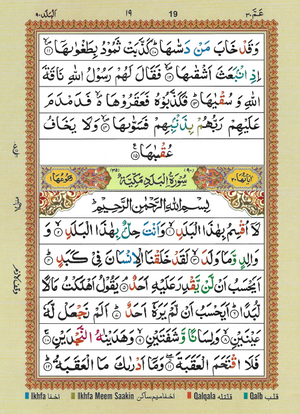 البلد ٩٠ ١٩ 19 عم ٣٠
وَقَدْ خَابَ مَنْ دَسّٰىهَا ۞ كَذَّبَتْ ثَمُوْدُ بِطَغْوٰىهَا ۞
اِذِ انْۢبَعَثَ اَشْقٰىهَا ۞ فَقَالَ لَهُمْ رَسُوْلُ اللّٰهِ نَاقَةَ
اللّٰهِ وَ سُقْيٰهَا ۞ فَكَذَّبُوْهُ فَعَقَرُوْهَا ۞ فَدَمْدَمَ
عَلَيْهِمْ رَبُّهُمْ بِذَنْۢبِهِمْ فَسَوّٰىهَا ۞ وَلَا يَخَافُ
عُقْبٰهَا ۞
سُوْرَةُ الْبَلَدِ مَكِّيَّةٌ
بِسْمِ اللّٰهِ الرَّحْمٰنِ الرَّحِيْمِ
لَاۤ اُقْسِمُ بِهٰذَا الْبَلَدِ ۞ وَاَنْتَ حِلٌّۢ بِهٰذَا الْبَلَدِ ۞ وَ
وَالِدٍ وَّمَا وَلَدَ ۞ لَقَدْ خَلَقْنَا الْاِنْسَانَ فِيْ كَبَدٍ ۞
اَيَحْسَبُ اَنْ لَّنْ يَّقْدِرَ عَلَيْهِ اَحَدٌ ۞ يَقُوْلُ اَهْلَكْتُ مَالًا
لُّبَدًا ۞ اَيَحْسَبُ اَنْ لَّمْ يَرَهٗۤ اَحَدٌ ۞ اَلَمْ نَجْعَلْ لَّهٗ
عَيْنَيْنِ ۞ وَلِسَانًا وَّشَفَتَيْنِ ۞ وَهَدَيْنٰهُ النَّجْدَيْنِ ۞
فَلَا اقْتَحَمَ الْعَقَبَةَ ۞ وَمَاۤ اَدْرٰىكَ مَا الْعَقَبَةُ ۞
Ikhfa اخفا Ikhfa Meem Saakin اخفا میم ساکن Qalqala قلقلہ Qalb قلب